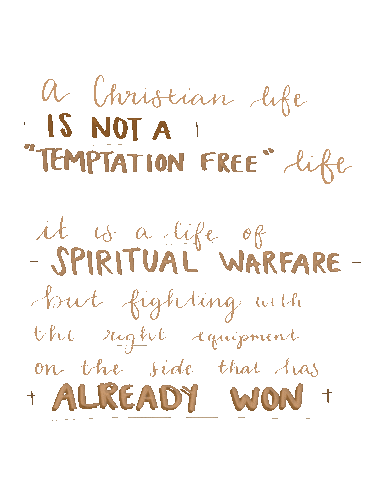 a Christian life
IS NOT A
"TEMPTATION FREE" life
it is a life of
- SPIRITUAL WARFARE -
but fighting with
the right equipment
on the side that has
ALREADY WON